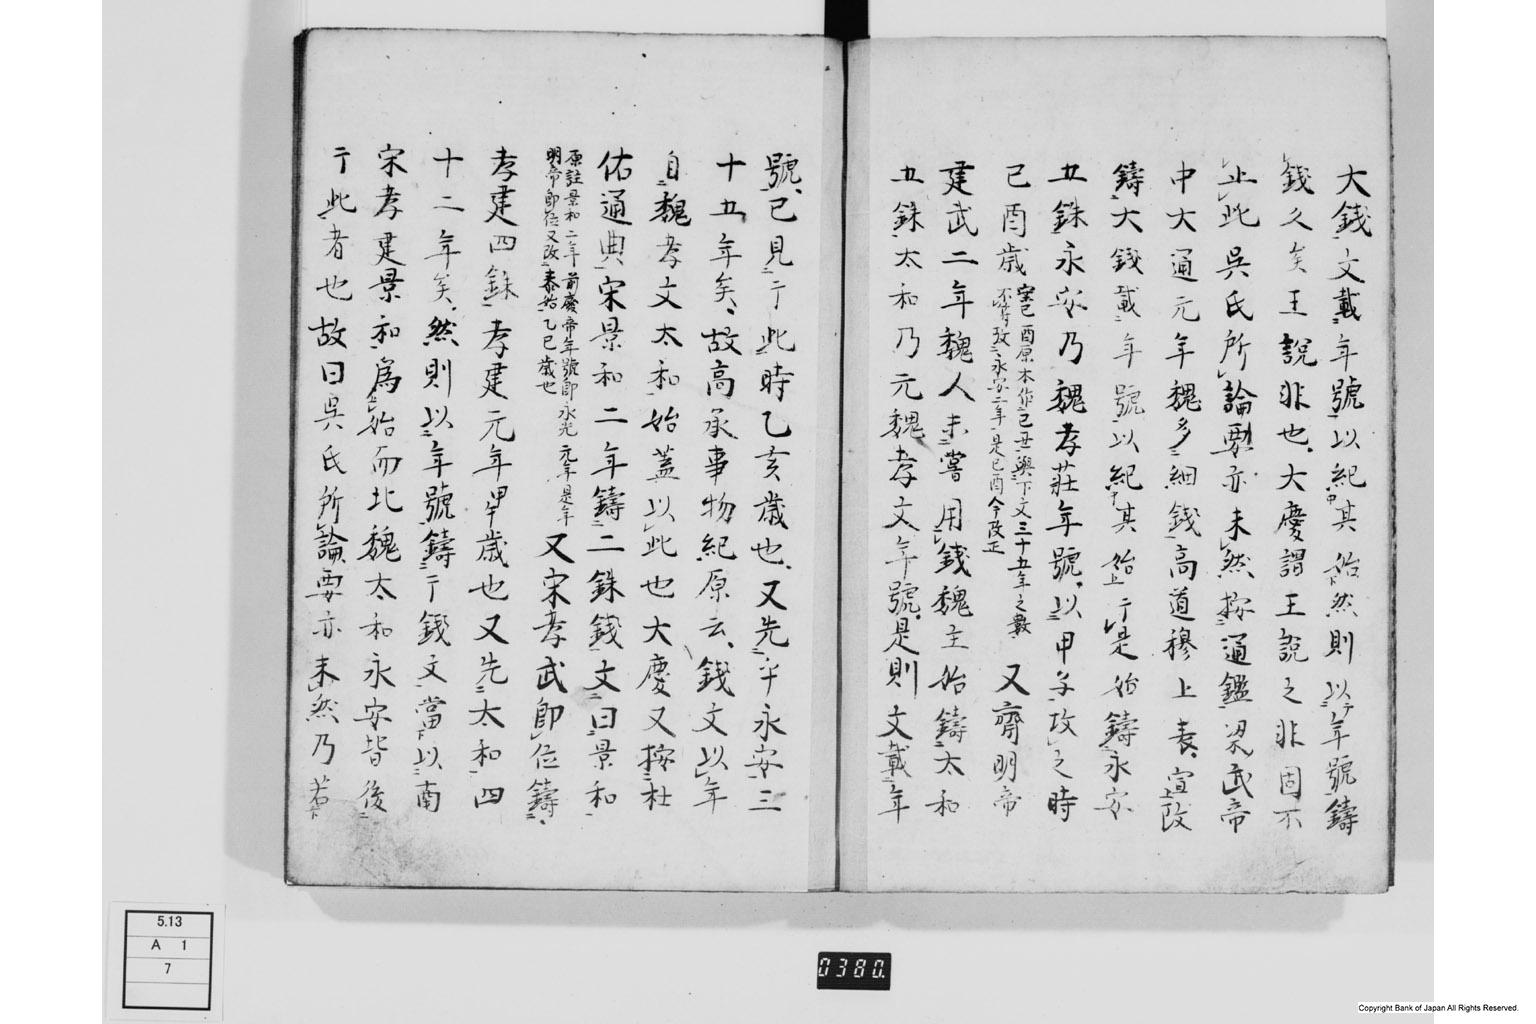 大錢文載年號以紀其始然則以年號鑄
錢久矣王說非也大慶謂王說之非固不
止此吳氏所論要亦未然按通鑑梁武帝
中大通元年魏多細錢高道穆上表宜改
鑄大錢載年號以紀其始于是始鑄永安
五銖永安乃魏孝莊年號以甲子攷之時
己酉歲
案己酉原本作己丑與下文三十五年之數
不符攷永安二年是己酉今改正
又齊明帝
建武二年魏人未嘗用錢魏主始鑄太和
五銖太和乃元魏孝文年號是則文載年
號已見于此時乙亥歲也又先乎永安三
十五年矣故高承事物紀原云錢文以年
自魏孝文太和始蓋以此也大慶又按杜
佑通典宋景和二年鑄二銖錢文曰景和
原註景和二年前廢帝年號即永光元年是年
明帝即位又改泰始乙巳歲也
又宋孝武即位鑄
孝建四銖孝建元年甲午歲也又先太和四
十二年矣然則以年號鑄于錢文當以南
宋孝建景和爲始而北魏太和永安皆後
于此者也故曰吳氏所論要亦未然乃若
5.13
A 1
7
0380.
Copyright Bank of Japan All Rights Reserved.